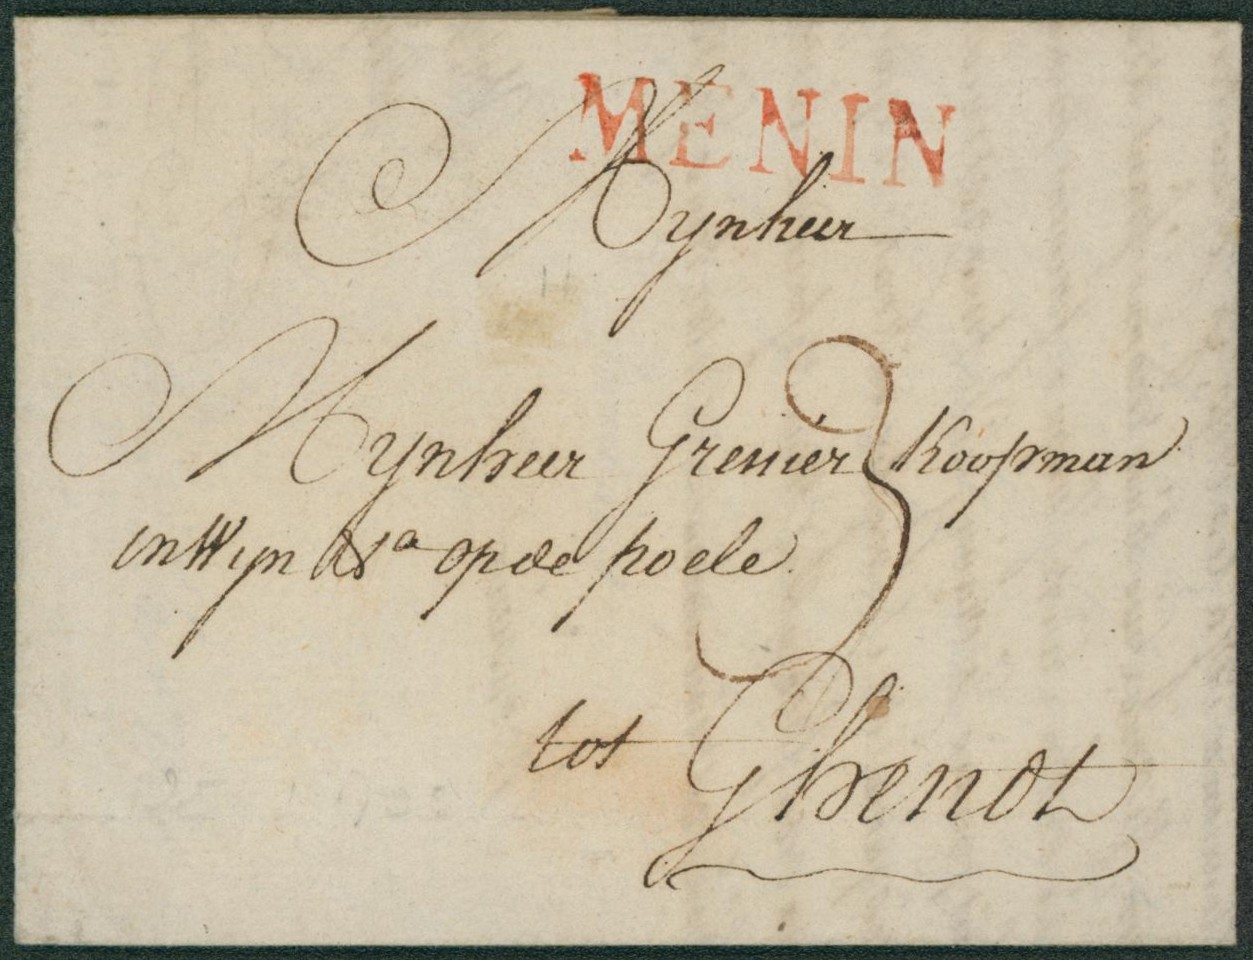 MENIN
Mynheer
Mynheer Grenier Koopman
in Wyn &a op de poele
3
tot Ghendt